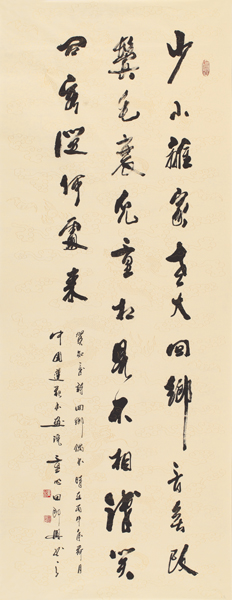 少小離家老大回鄉音無改
鬢毛衰兒童相見不相識笑
問客從何處來
賀知章詩回鄉偶書
中國